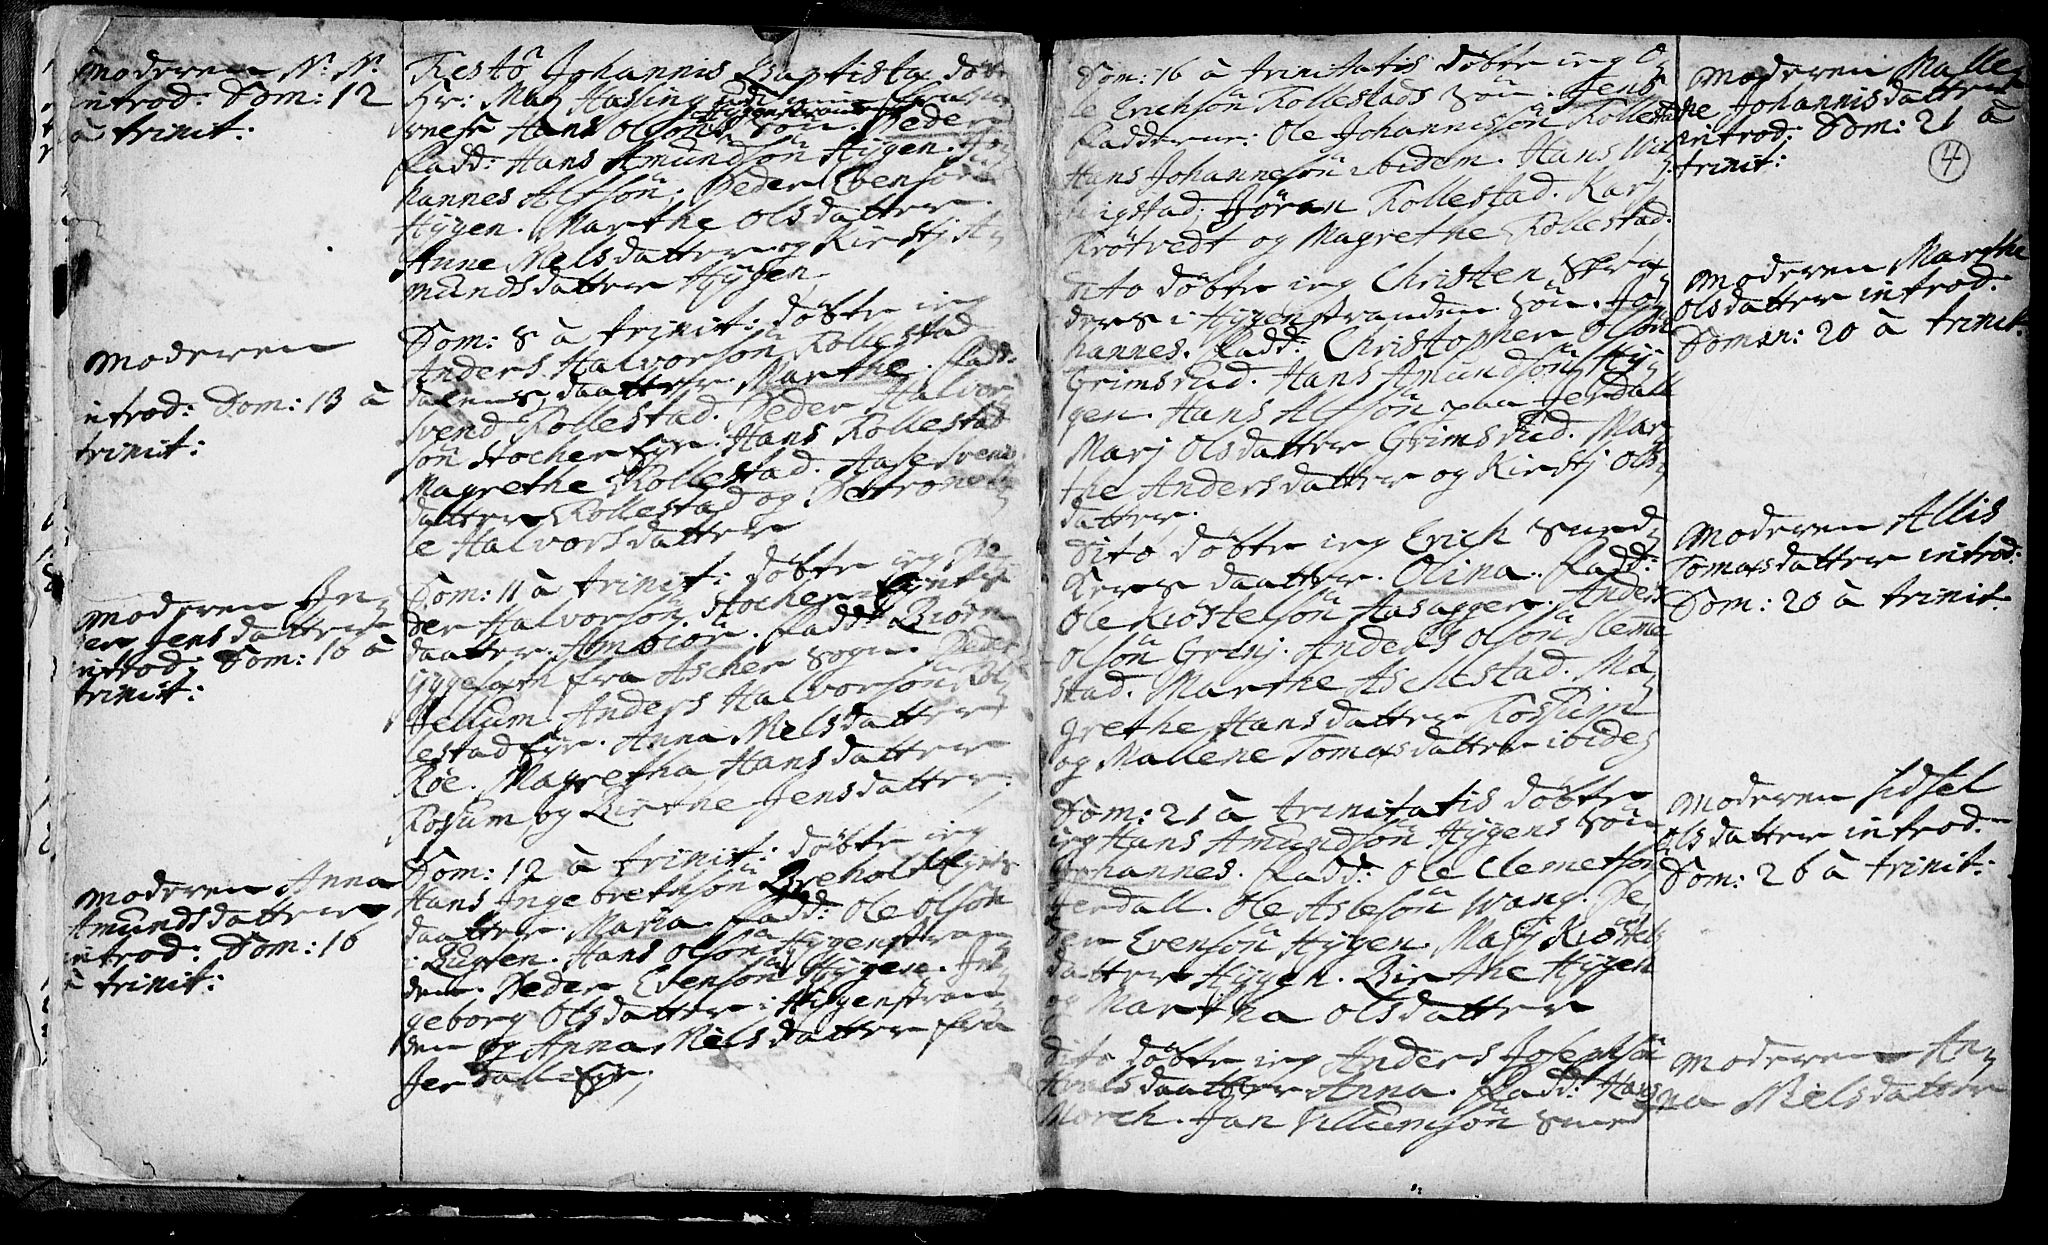 Moderen N: N:
introd: Dom: 12
à trinit:
Moderen
introd: Dom: 13 à
trinit:
Moderen In¬
ger Jensdatter
introd: Dom: 16 à
trinit:
Moderen Anna
Amundsdatter
introd: Dom: 16
à trinit:
Festo Johannis Baptistæ døb
Hr: Mag Hassing
Hans Olsøns Søn. Peder
Fadd: Hans Amundsøn Hÿgen. Jo
hannes Alfsøn. Peder Evensøn
Hÿgen. Marthe Olsdatter.
Anne Nielsdatter og Kirstj A
mundsdatter Hÿgen
Dom: 8 à trinit: døbte ieg
Anders Halvorsøn Rollestad
dalens daatter Marthe. Fadd:
Svend Rollestad. Peder Halvor
søn Stocher Eye. Hans Rollestad
Magrethe Rollestad. Aase Svens
datter Rollestad og Petronel
le Halvorsdatter
Dom: 11 à trinit: døbte ieg Pe
der Halvorsøn Stocher
daatter. Ambiør. Fadd: Biørn
fra Ascher Sogn Peder
Hellum. Anders Halvorsøn Rol
lestad Eye. Anna Nielsdatter
Røe. Magretha Hansdatter
Rossum og Birthe Jensdatter
Dom: 12 à trinit: døbte ieg
Hans Ingebretsøn Breholt
daatter. Maria. Fadd: Ole Olsøn
i Bugten. Hans Olsøn Hÿgenstran
den. Peder Evensøn Hÿgen. In
geborg Olsdatter i Hÿgenstran
den og Anna Nielsdatter fra
Jerdall Eye.
Dom: 16 à trinitatis døbte ieg O
le Erichsøn Rollestads Søn. Jens
Faddere: Ole Johannissøn Rollestad
Hans Johannesøn ibidem. Hans
Jøran Rollestad. Karj
Krøtvedt og Magrethe Rollestad.
Dito døbte ieg Christen Skræ
ders i Hÿgenstranden Søn. Jo
hannes. Fadd: Christopher Olsøn
Grimsrud. Hans Amundsøn Hÿ
gen. Hans Alfsøn paa Jerdall
Marj Olsdatter Grimsrud. Mar
the Andersdatter og Kirstj Ols
datter.
Dito døbte ieg Erich
daatter. Olina. Fadd:
Ole Kiøstelsøn Aasaggen. Anders
Olsøn Grinj. Anders Olsøn Sleme
stad. Marthe Aslestad. Ma
grethe Hansdatter Rossum
og Mallene Tomasdatter ibide
Dom: 21 à trinitatis døbte
ieg Hans Amundsøn Hÿgens Søn
Johannes. Fadd: Ole Clemetsøn
Jerdall. Ole Aslesøn Wang. Pe
der Evensøn Hÿgen. Marj Kiøstels
datter Hÿgen. Birthe Hÿgen
og Martha Olsdatter
Dito døbte ieg Anders Josephsøn
daatter Anna. Fadd: Hans
Morch. Jan Villumsøn
Moderen Malle
ne Johannisdatter
introd: Dom: 21 à
trinit:
4
Moderen Marthe
Olsdatter introd:
Dom: 20 à trinit:
Moderen Allis
Tomasdatter introd:
Dom: 20 à trinit:
Moderen Sidsel
Olsdatter introd:
Dom: 26 à trinit:
Moderen An
na Nielsdatter